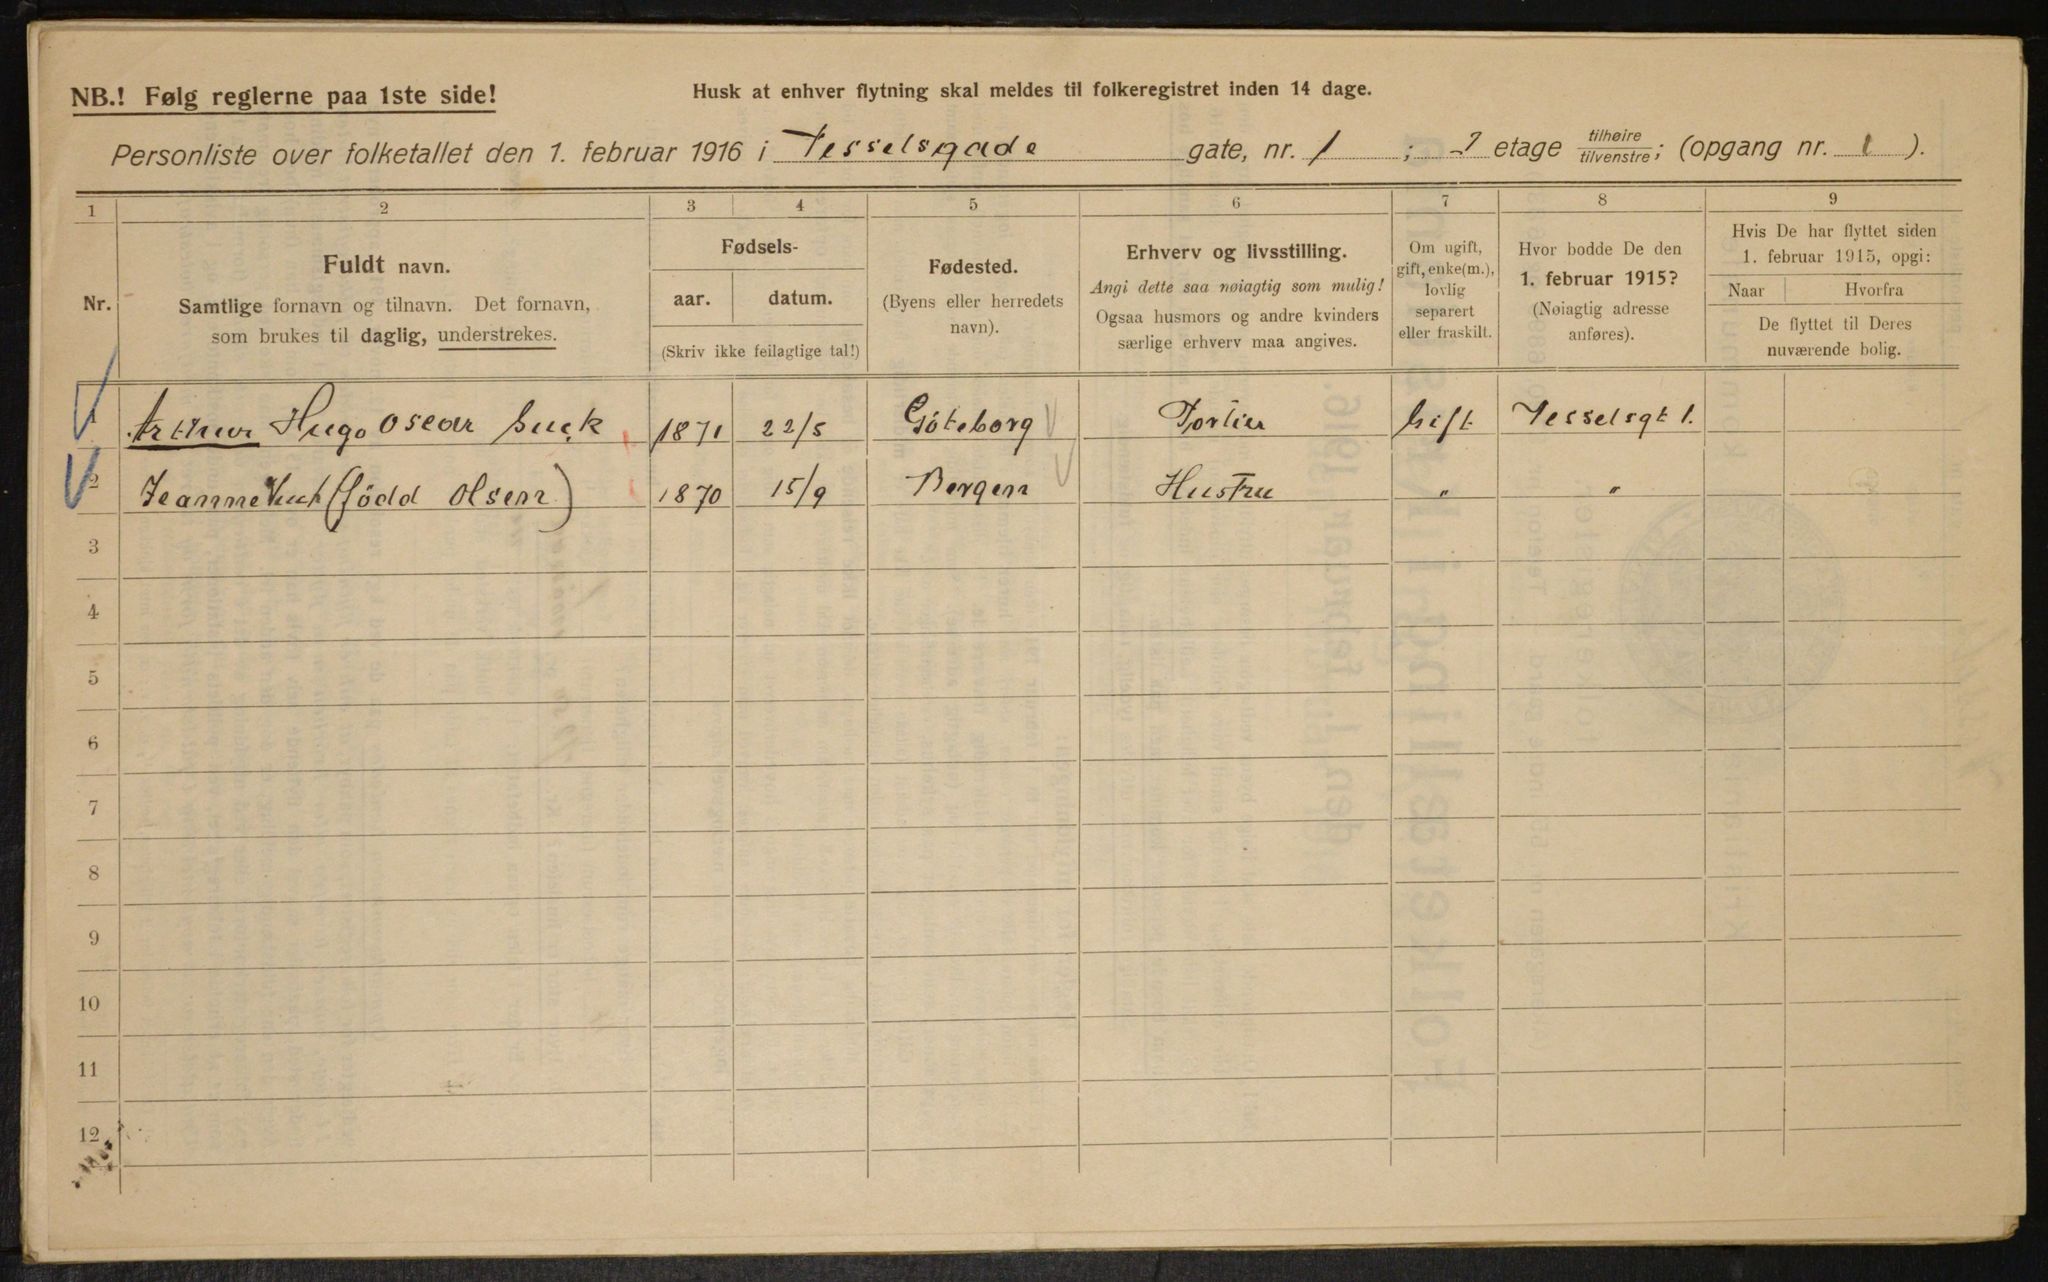 NB.! Følg reglerne paa 1ste side!
Husk at enhver flytning skal meldes til folkeregistret inden 14 dage.
Personliste over folketallet den 1. februar 1916 i Tesselsgade gate, nr. 1 ; etage tilhøire/tilvenstre; (opgang nr. 1 ).
1 2 3 4 5 6 7 8 9
Nr.
Fuldt navn.
Samtlige fornavn og tilnavn. Det fornavn,
som brukes til daglig, understrekes.
Fødsels-
aar. datum.
(Skriv ikke feilagtige tal!)
Fødested.
(Byens eller herredets
navn).
Erhverv og livsstilling.
Angi dette saa nøiagtig som mulig!
Ogsaa husmors og andre kvinders
særlige erhverv maa angives.
Om ugift,
gift, enke(m.),
lovlig
separert
eller fraskilt.
Hvor bodde De den
1. februar 1915?
(Nøiagtig adresse
anføres).
Hvis De har flyttet siden
1. februar 1915, opgi:
Naar Hvorfra
De flyttet til Deres
nuværende bolig.
1 Arthur Hugo Oscar 1871 22/5 Göteborg Portier Gift Tesselsgt 1.
2 Jeanne (född Olsen) 1870 15/9 Bergen Hustru " "
3
4
5
6
7
8
9
10
11
12